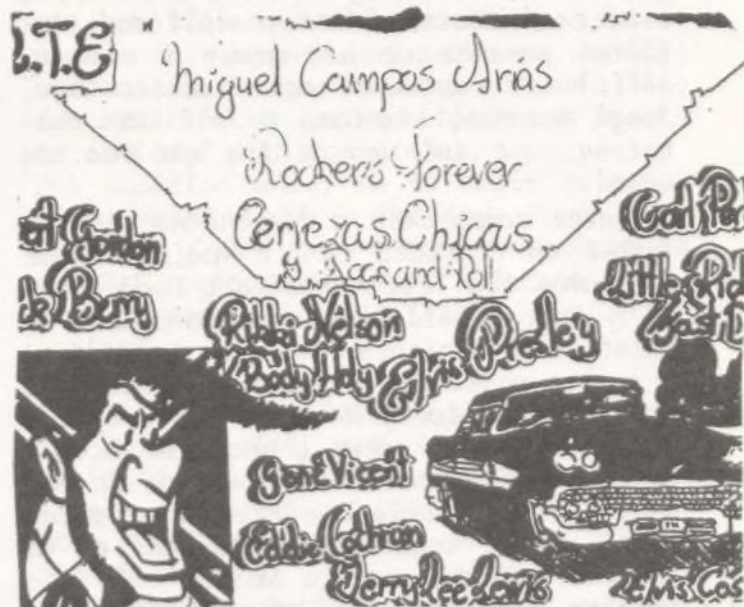 L.T.E
Miguel Campos Arias
Rockers-forever
Cervezas Chicas
y Rock and Roll
ert Gordon
Carl Per
ck Berry
Little Rich
Rikki Nelson
East D
y Body Holy
Elvis Presley
Gene Vicent
Eddie Cochran
Jerry Lee Lewis
Elvis Cos